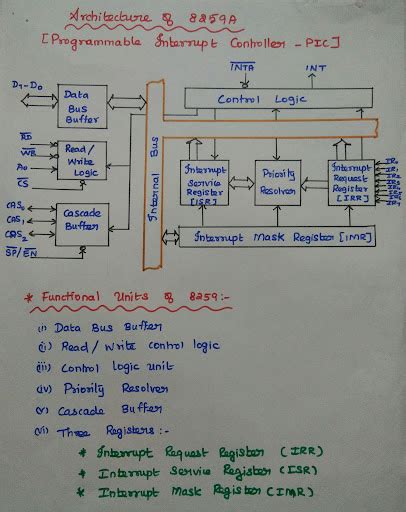 Architecture of 8259A
[Programmable Interrupt Controller - PIC]
INTA INT
D7-D0
Data
Bus
Buffer
Control Logic
RD
WR
A0
CS
Read/
Write
Logic
Internal Bus
Interrupt
Service
Register
[ISR]
Priority
Resolver
Interrupt
Request
Register
[IRR]
IR0
IR1
IR2
IR3
IR4
IR5
IR6
IR7
CAS0
CAS1
CAS2
SP/EN
Cascade
Buffer
Interrupt Mask Register [IMR]
* Functional Units of 8259:-
(i) Data Bus Buffer
(ii) Read/Write control logic
(iii) Control logic unit
(iv) Priority Resolver
(v) Cascade Buffer
(vi) Three Registers:-
* Interrupt Request Register (IRR)
* Interrupt Service Register (ISR)
* Interrupt Mask Register (IMR)